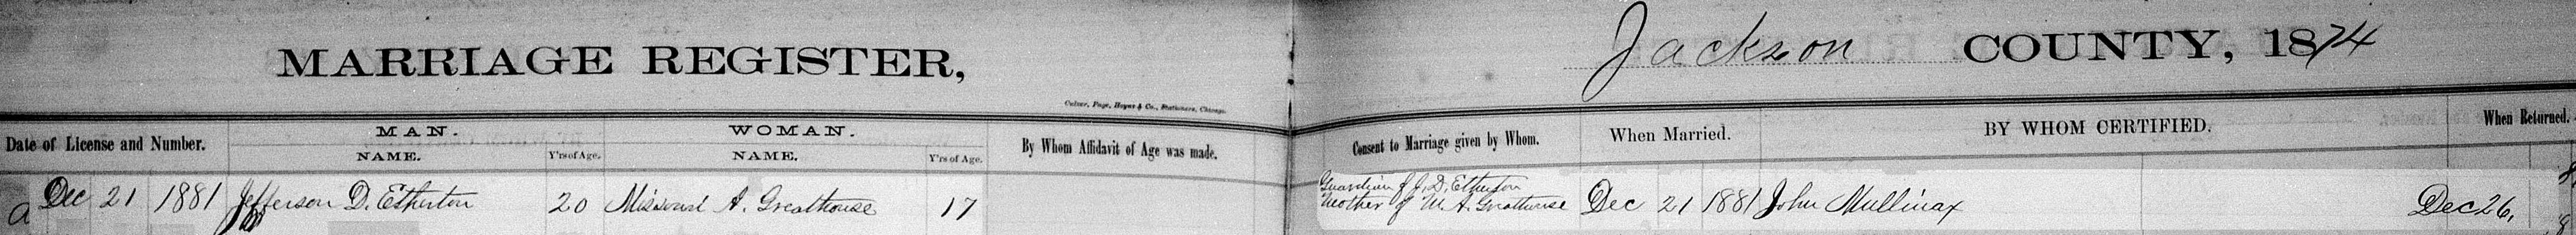 MARRIAGE REGISTER,
Jackson COUNTY, 1874
Culver, Page, Hoyne & Co., Stationers, Chicago.
Date of License and Number.
MAN.
NAME.
Y'rs of Age.
WOMAN.
NAME.
Y'rs of Age.
By Whom Affidavit of Age was made.
Consent to Marriage given by Whom.
When Married.
BY WHOM CERTIFIED.
When Returned.
a Dec 21 1881 Jefferson D. Etherton 20 Missouri A. Greathouse 17
Guardian of J. D. Etherton
Mother of M. A. Greathouse
Dec 21 1881 John Mullinax Dec 26,